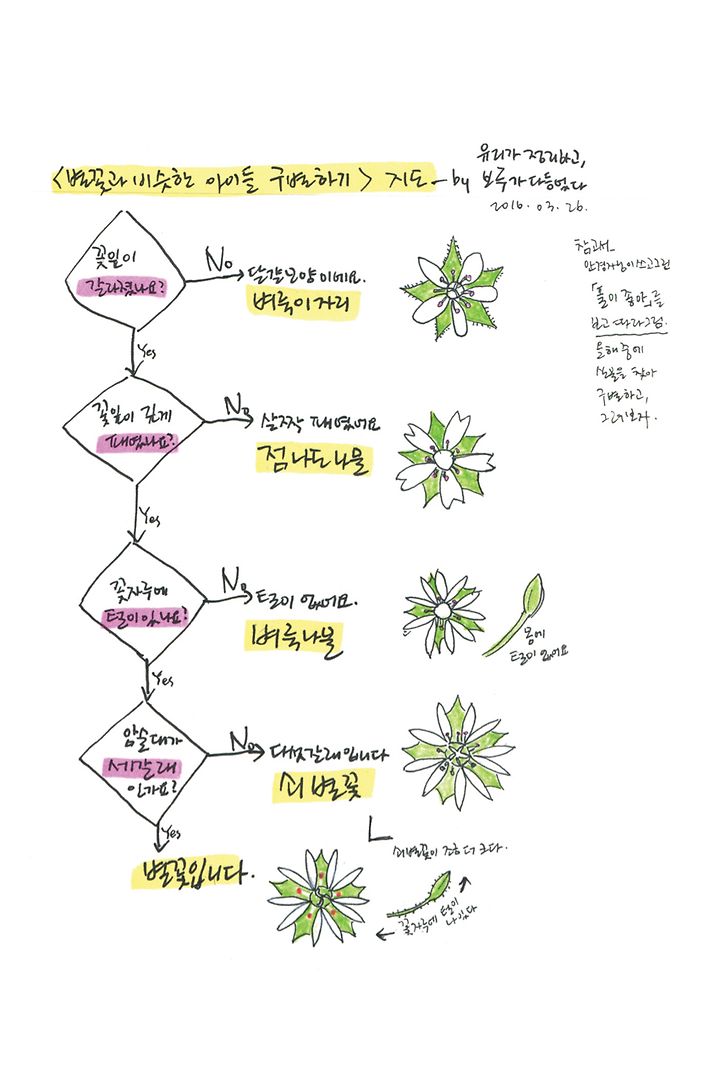 <별꽃과 비슷한 아이들 구별하기> 지도 - by
유리가 정리하고,
보루가 다듬었다
2016. 03. 26.
참고서_
안경자님이 쓰고 그린
「풀이 좋아」를
보고 따라그림.
올해 중에
실물을 찾아
구별하고,
그려보자.
꽃잎이
갈라졌나요?
No
달걀모양이에요.
벼룩이자리
Yes
꽃잎이 깊게
패였나요?
No
살짝 패였어요
점나도나물
Yes
꽃자루에
털이 있나요?
No
털이 없어요.
벼룩나물
몸에
털이 없어요
Yes
암술대가
세갈래
인가요?
No
다섯갈래입니다
쇠별꽃
쇠별꽃이 조금 더 크다.
Yes
별꽃입니다.
꽃자루에 털이
나있다